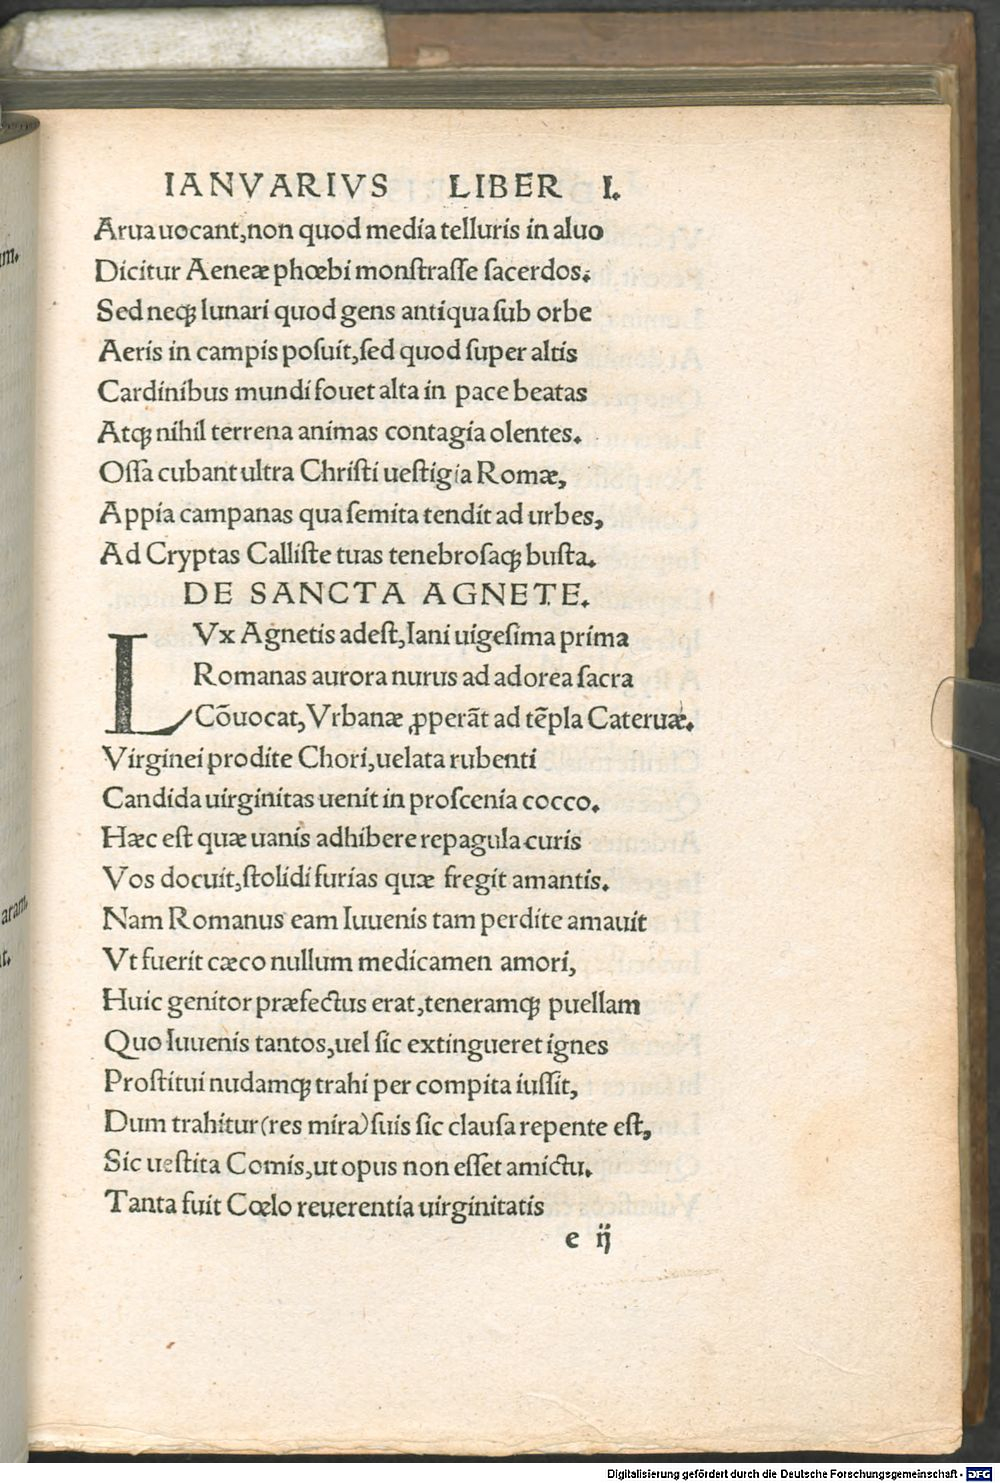 IANVARIVS LIBER I.
Arua uocant,non quod media telluris in aluo
Dicitur Aeneæ phœbi monſtraſſe ſacerdos.
Sed neqꝫ lunari quod gens antiqua ſub orbe
Aeris in campis poſuit,ſed quod ſuper altis
Cardinibus mundi fouet alta in pace beatas
Atqꝫ nihil terrena animas contagia olentes.
Oſſa cubant ultra Chriſti ueſtigia Romæ,
Appia campanas qua ſemita tendit ad urbes,
Ad Cryptas Calliſte tuas tenebroſaqꝫ buſta.
DE SANCTA AGNETE.
LVx Agnetis adeſt,Iani uigeſima prima
Romanas aurora nurus ad adorea ſacra
Cōuocat,Vrbanæ ꝓperāt ad tēpla Cateruæ.
Virginei prodite Chori,uelata rubenti
Candida uirginitas uenit in proſcenia cocco.
Hæc eſt quæ uanis adhibere repagula curis
Vos docuit,ſtolidi furias quæ fregit amantis.
Nam Romanus eam Iuuenis tam perdite amauit
Vt fuerit cæco nullum medicamen amori,
Huic genitor præfectus erat,teneramqꝫ puellam
Quo Iuuenis tantos,uel ſic extingueret ignes
Proſtitui nudamqꝫ trahi per compita iuſſit,
Dum trahitur(res mira)ſuis ſic clauſa repente eſt,
Sic ueſtita Comis,ut opus non eſſet amictu.
Tanta fuit Cœlo reuerentia uirginitatis
e ij
um.
aram.
t.
Digitalisierung gefördert durch die Deutsche Forschungsgemeinschaft - DFG